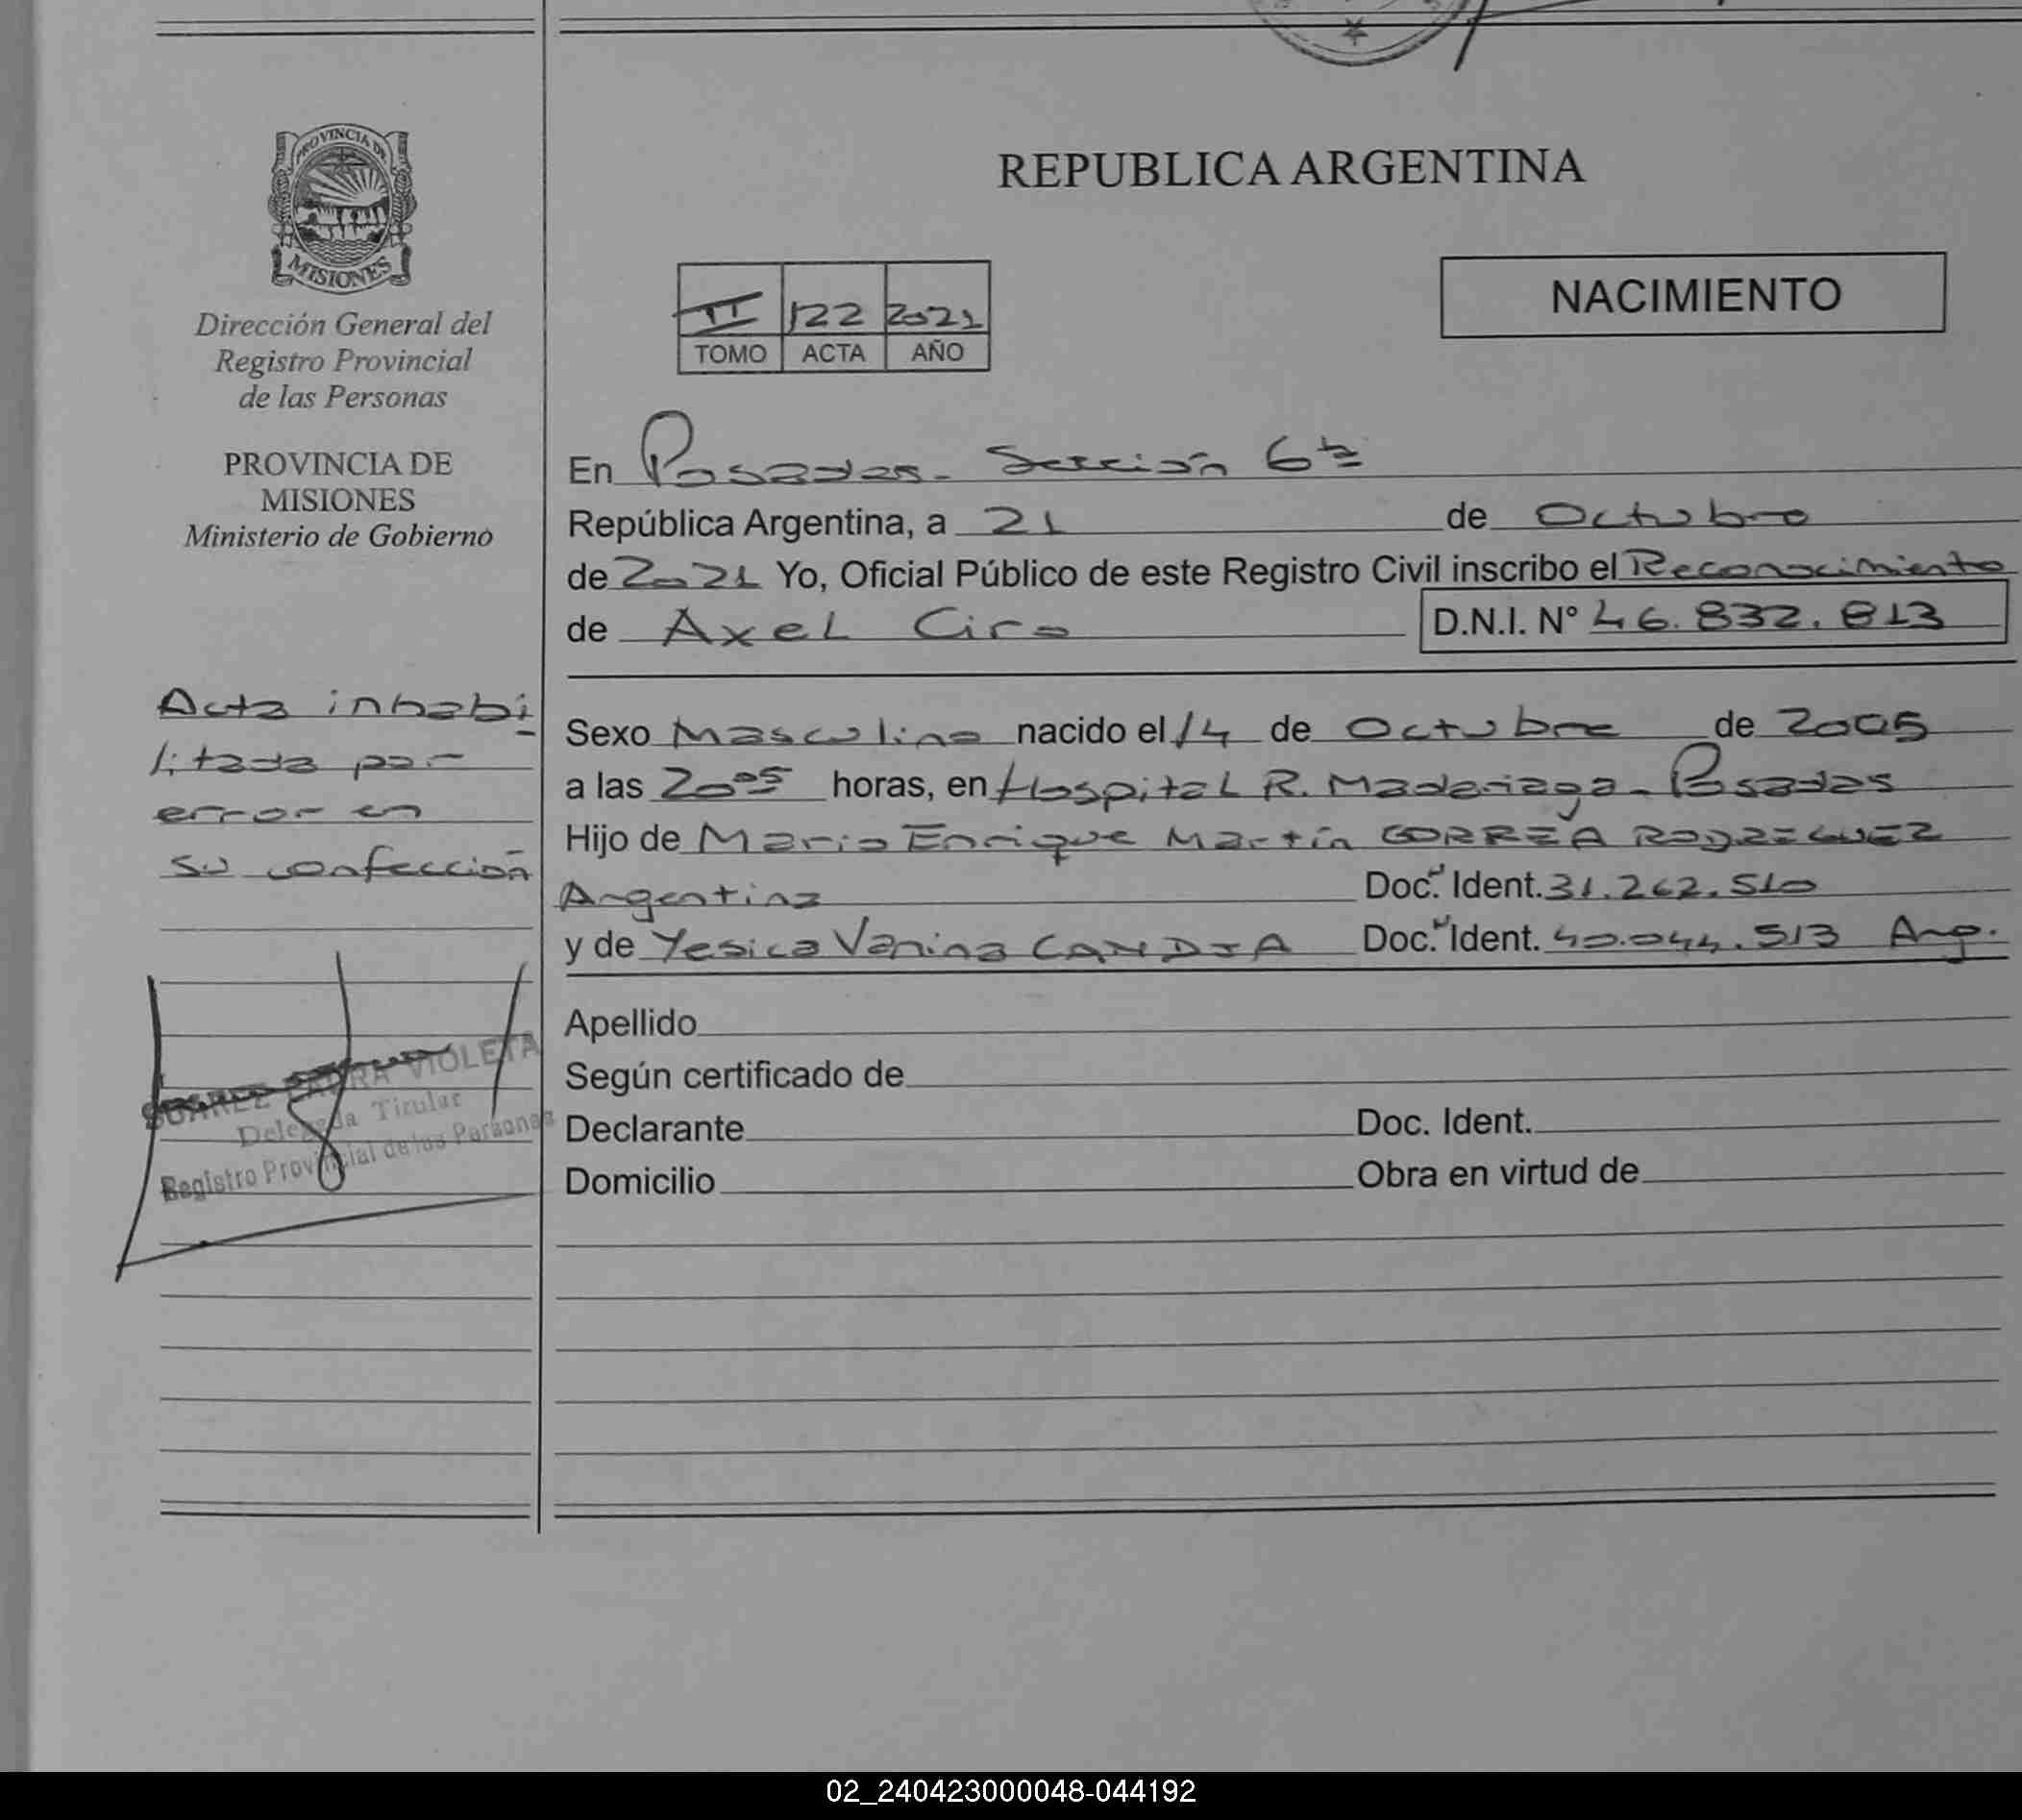 PROVINCIA DE
MISIONES
Dirección General del
Registro Provincial
de las Personas
PROVINCIA DE
MISIONES
Ministerio de Gobierno
Acta inhabi
litada por
error en
su confección
SUAREZ LAURA VIOLETA
Delegada Titular
Registro Provincial de las Personas
REPUBLICA ARGENTINA
II 122 2021
TOMO ACTA AÑO
NACIMIENTO
En Posadas - Sección 6ta
República Argentina, a 21 de Octubre
de 2021 Yo, Oficial Público de este Registro Civil inscribo el Reconocimiento
de Axel Ciro D.N.I. N° 46.832.813
Sexo Masculino nacido el 14 de Octubre de 2005
a las 20:05 horas, en Hospital R. Madariaga - Posadas
Hijo de Mario Enrique Martín CORREA RODRIGUEZ
Argentina Doc. Ident. 31.262.510
y de Yesica Vanina CANDIA Doc. Ident. 40.044.513 Arg.
Apellido
Según certificado de
Declarante Doc. Ident.
Domicilio Obra en virtud de
02_240423000048-044192